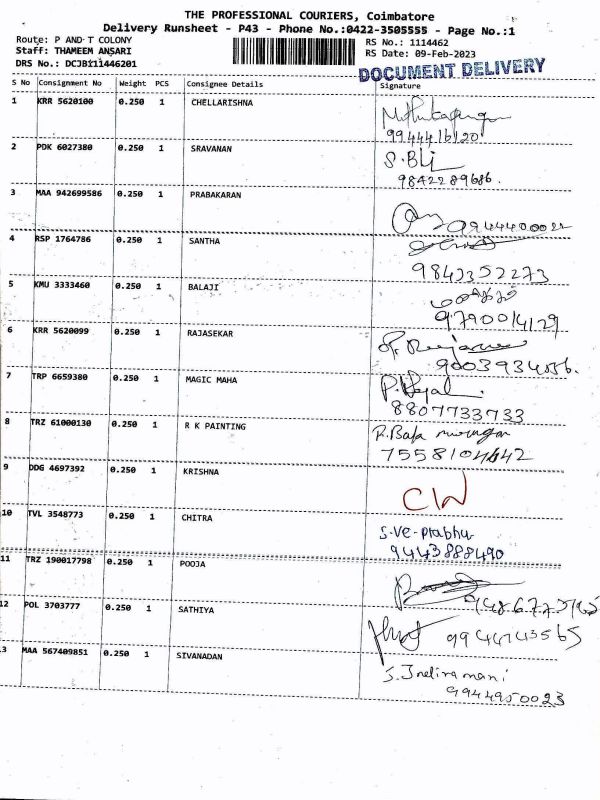 THE PROFESSIONAL COURIERS, Coimbatore
Delivery Runsheet - P43 - Phone No.:0422-3505555 - Page No.:1
Route: P AND T COLONY
Staff: THAMEEM ANSARI
DRS No.: DCJB111446201
RS No.: 1114462
RS Date: 09-Feb-2023
DOCUMENT DELIVERY
S No Consignment No Weight PCS Consignee Details Signature
1 KRR 5620100 0.250 1 CHELLARISHNA
9944416120
2 PDK 6027380 0.250 1 SRAVANAN
9842289686.
3 MAA 942699586 0.250 1 PRABAKARAN
9944400022
4 RSP 1764786 0.250 1 SANTHA
9843352273
5 KMU 3333460 0.250 1 BALAJI
9790014129
6 KRR 5620099 0.250 1 RAJASEKAR
7 TRP 6659380 0.250 1 MAGIC MAHA
8807733733
8 TRZ 61000130 0.250 1 R K PAINTING
R. Bala murugan
9 DDG 4697392 0.250 1 KRISHNA
10 TVL 3548773 0.250 1 CHITRA
S.Ve-Prabhu
9443888490
11 TRZ 190017798 0.250 1 POOJA
12 POL 3703777 0.250 1 SATHIYA
9944743565
13 MAA 567409851 0.250 1 SIVANADAN
S. Indiramani
9944950023